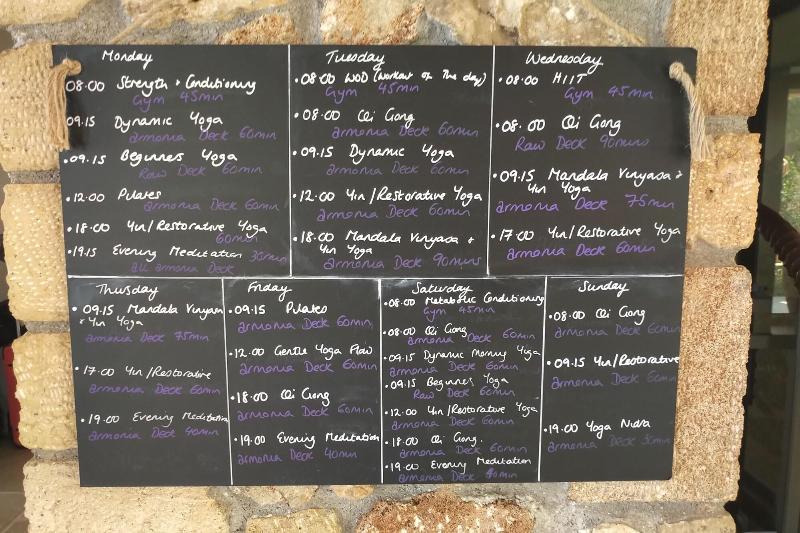 Monday
08.00 Strength + Conditioning
Gym 45min
09.15 Dynamic Yoga
armonia Deck 60min
09.15 Beginners Yoga
Raw Deck 60min
12.00 Pilates
armonia Deck 60min
18.00 Yin/Restorative Yoga
60min
19.15 Evening Meditation 30min
all armonia Deck
Tuesday
08.00 WOD (Workout of The day)
Gym 45min
08.00 Qi Gong
armonia Deck 60min
09.15 Dynamic Yoga
armonia Deck 60min
12.00 Yin/Restorative Yoga
armonia Deck 60min
18.00 Mandala Vinyasa +
Yin Yoga
armonia Deck 90mins
Wednesday
08.00 HIIT
Gym 45min
08.00 Qi Gong
Raw Deck 90mins
09.15 Mandala Vinyasa +
Yin Yoga
armonia Deck 75min
17.00 Yin/Restorative Yoga
armonia Deck 60min
Thursday
09.15 Mandala Vinyasa
+ Yin Yoga
armonia Deck 75min
17.00 Yin/Restorative
armonia Deck 60min
19.00 Evening Meditation
armonia Deck 40min
Friday
09.15 Pilates
armonia Deck 60min
12.00 Gentle Yoga Flow
armonia Deck 60min
18.00 Qi Gong
armonia Deck 60min
19.00 Evening Meditation
armonia Deck 40min
Saturday
08.00 Metabolic Conditioning
Gym 45min
08.00 Qi Gong
armonia Deck 60min
09.15 Dynamic Morning Yoga
09.15 Beginners Yoga
Raw Deck 60min
12.00 Yin/Restorative Yoga
armonia Deck 60min
18.00 Qi Gong.
armonia Deck 60min
19.00 Evening Meditation
armonia Deck 40min
Sunday
08.00 Qi Gong
armonia Deck 60min
09.15 Yin/Restorative
armonia Deck 60min
19.00 Yoga Nidra
armonia Deck 30min